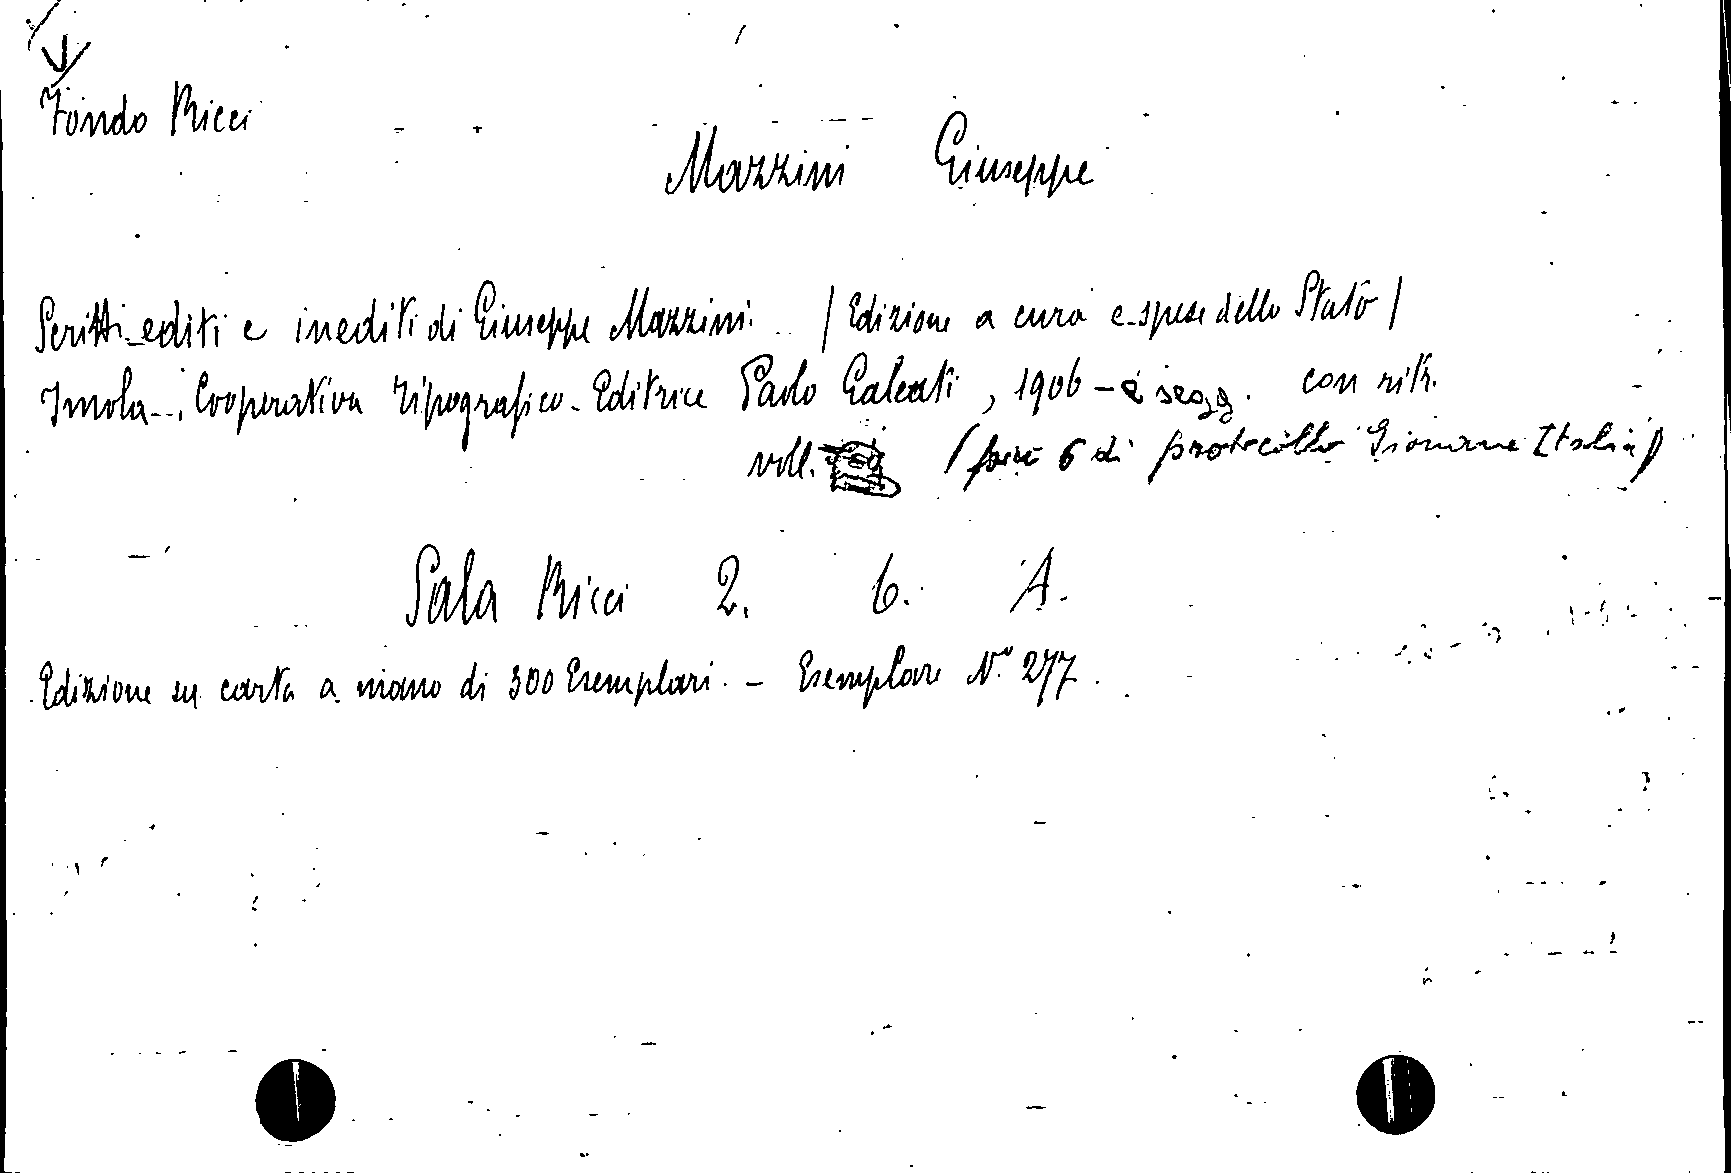 Fondo Ricci
Mazzini Giuseppe
Scritti editi e inediti di Giuseppe Mazzini. / Edizione a cura e spese dello Stato /
Imola -. Cooperativa Tipografico-Editrice Paolo Galeati, 1906 - e segg. con ritr.
voll. 6 di protocollo Giovane Italia)
Sala Ricci 2. 6. A.
Edizione su carta a mano di 300 Esemplari. - Esemplare N.° 277.